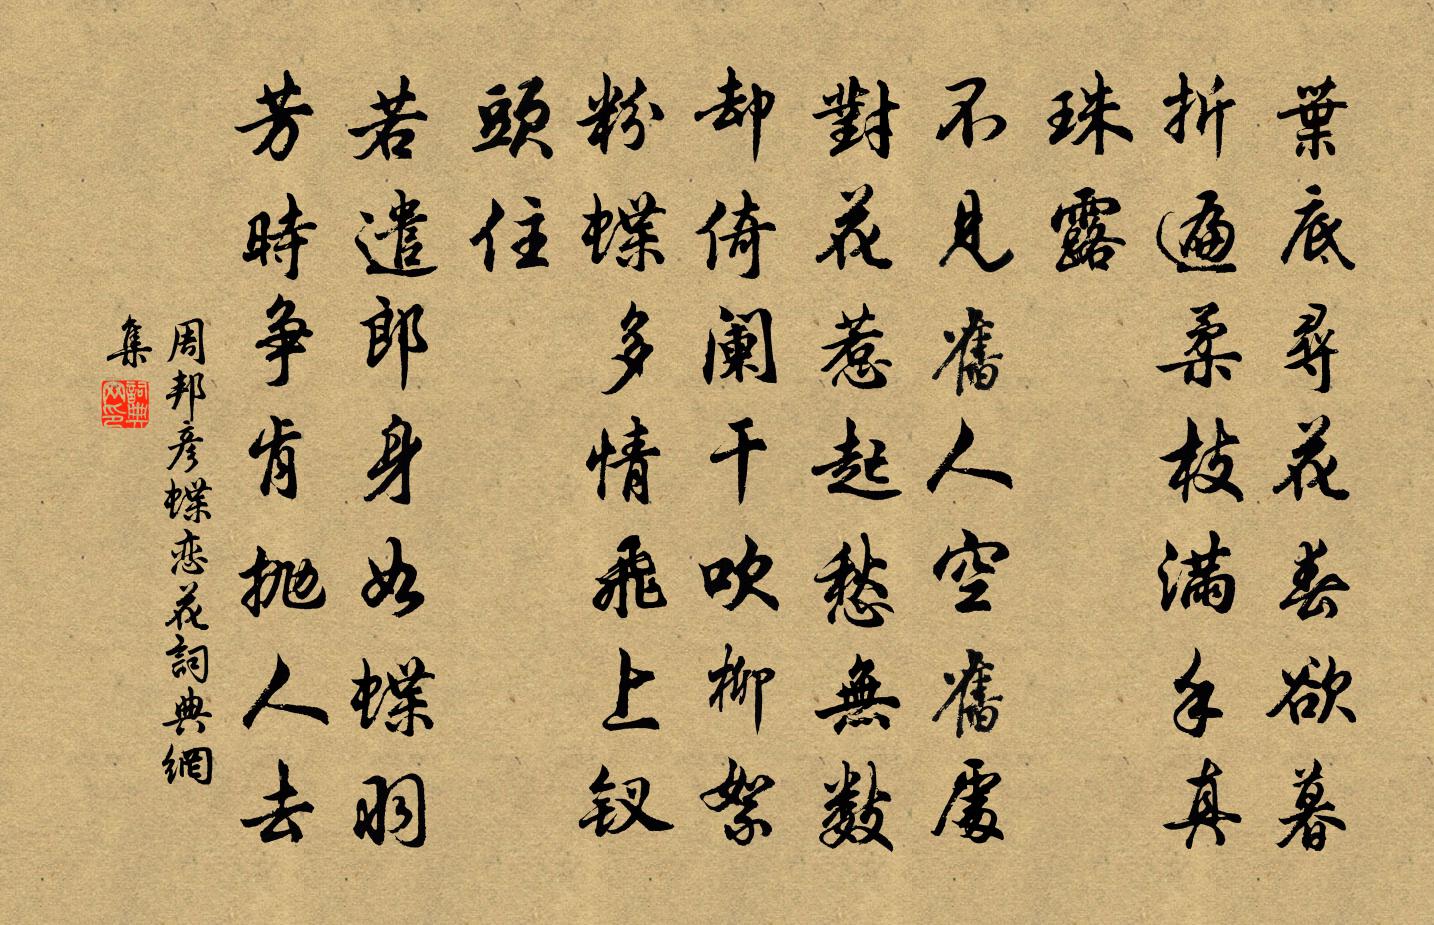 葉底尋花春欲暮
折遍柔枝滿手真
珠露
不見舊人空舊處
對花惹起愁無數
却倚阑干吹柳絮
粉蝶多情飛上钗
頭住
若遣郎身如蝶羽
芳時争肯抛人去
周邦彦蝶恋花詞典網
集
詞典網印